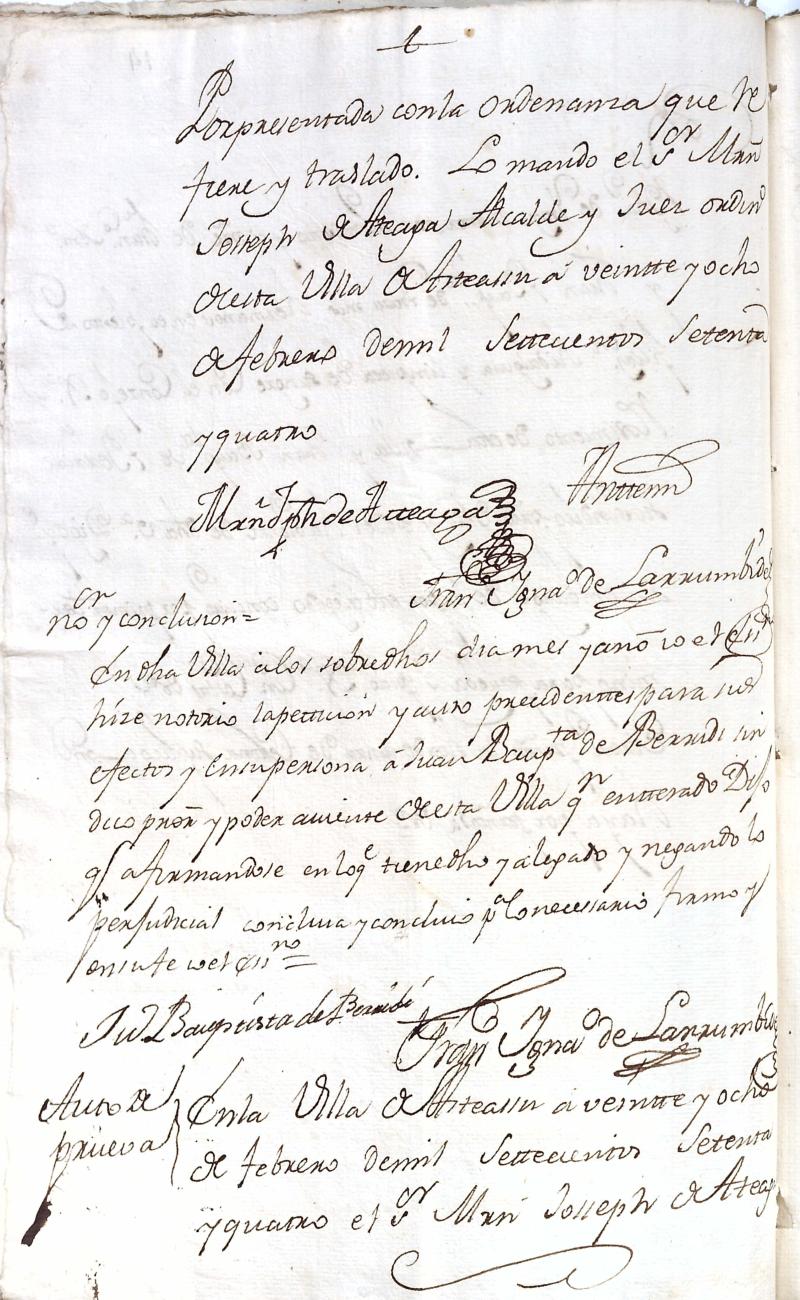 t
Por presentada con la ordenanza que re
fiere y traslado. Lo mando el Sr Mrñ
Josseph de Ateaga Alcalde y Juez ordinº
de esta Villa de Arteassu a veintte y ocho
de febrero de mil settecientos setenta
y quatro
Mrñ Jph de Atteaga
Anttemi
Fran Ignaº de Larrumbide
noon y conclusion=
En dha Villa a los sobredhos dia mes y año io el essno
hize notorio la peticion y auto precedenttes para sus
efectos y en su persona á Juan Baupta de Berridi sin
dico pror y poder aviente de esta Villa qn entterado Dijo
q afirmandose en loq tiene dho y alegado y negando lo
perjudicial concluia y concluio pa lo necessario firmo y
en su fe io el essno=
Jun Bauptista de Berridi
Fran Ignaº de Larrumbide
Auto de
prueva
En la Villa de Arteassu a veintte y ocho
de febrero de mil settecientos setenta
y quatro el Sr Mrñ Josseph de Ateaga